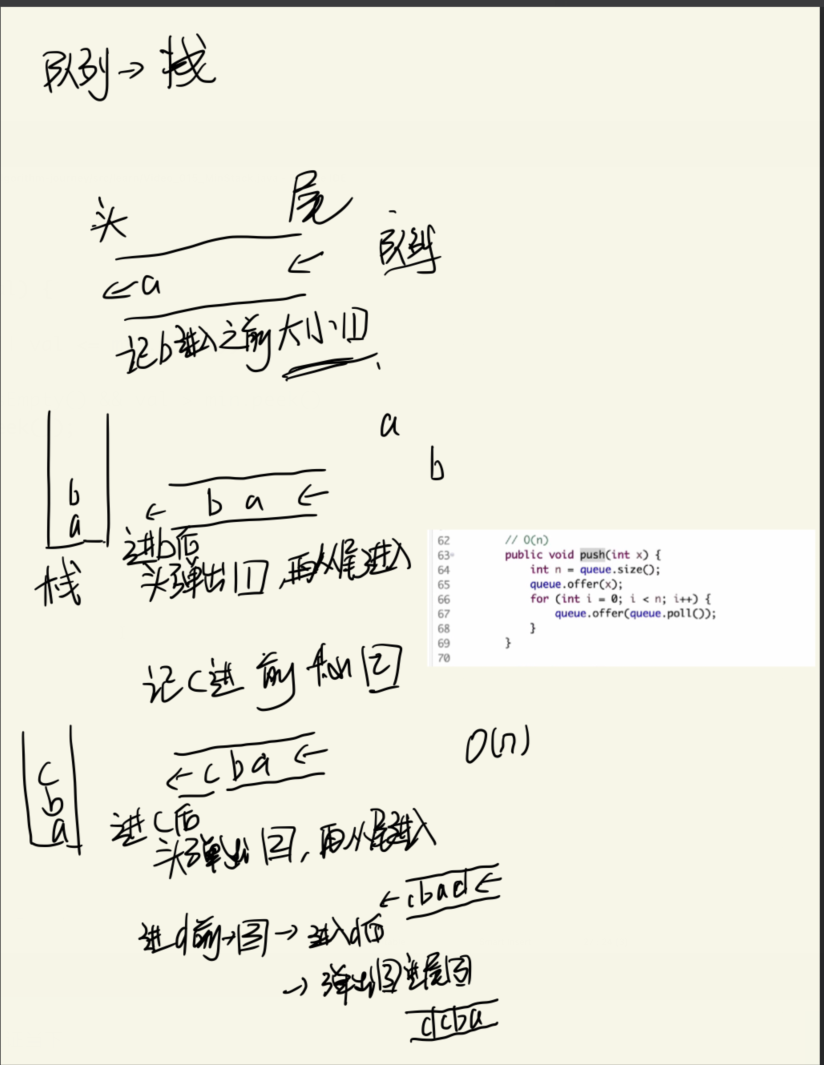 队列→栈
头 尾
队列
←a ←
记b进入之前大小1
a
b
b
a
← b a ←
栈
进b后
头弹出1,再从尾进入
62 // O(n)
63 public void push(int x) {
64 int n = queue.size();
65 queue.offer(x);
66 for (int i = 0; i < n; i++) {
67 queue.offer(queue.poll());
68 }
69 }
70
记c进前大小2
c
b
a
←c b a ←
O(n)
进c后
头弹出2,再从尾进入
←cbad←
进d前→3→进入d后
→弹出3进尾3
dcba